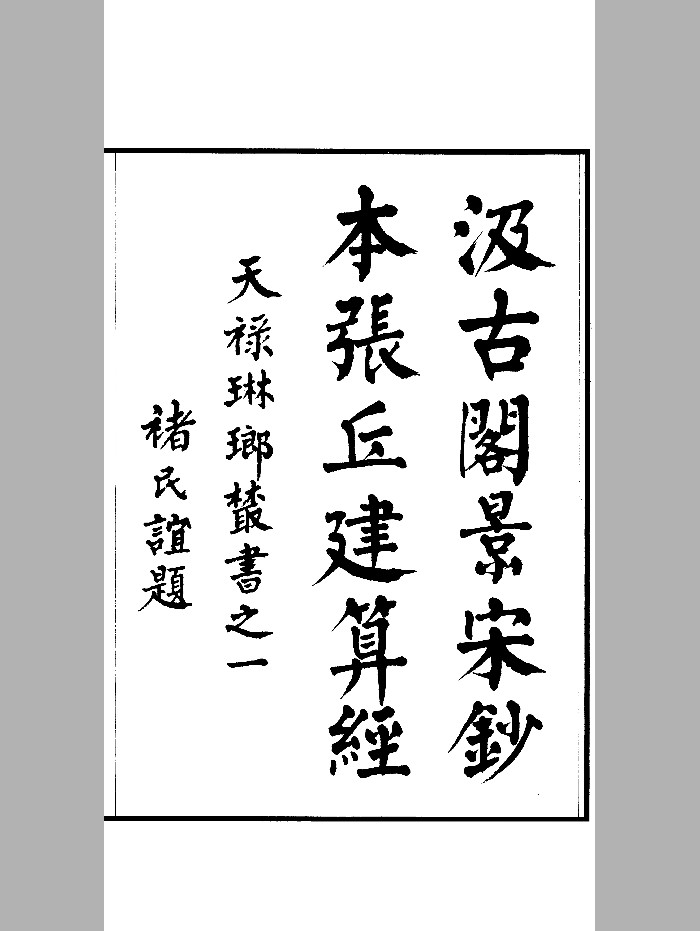 汲古閣景宋鈔
本張丘建算經
天祿琳瑯叢書之一
褚民誼題